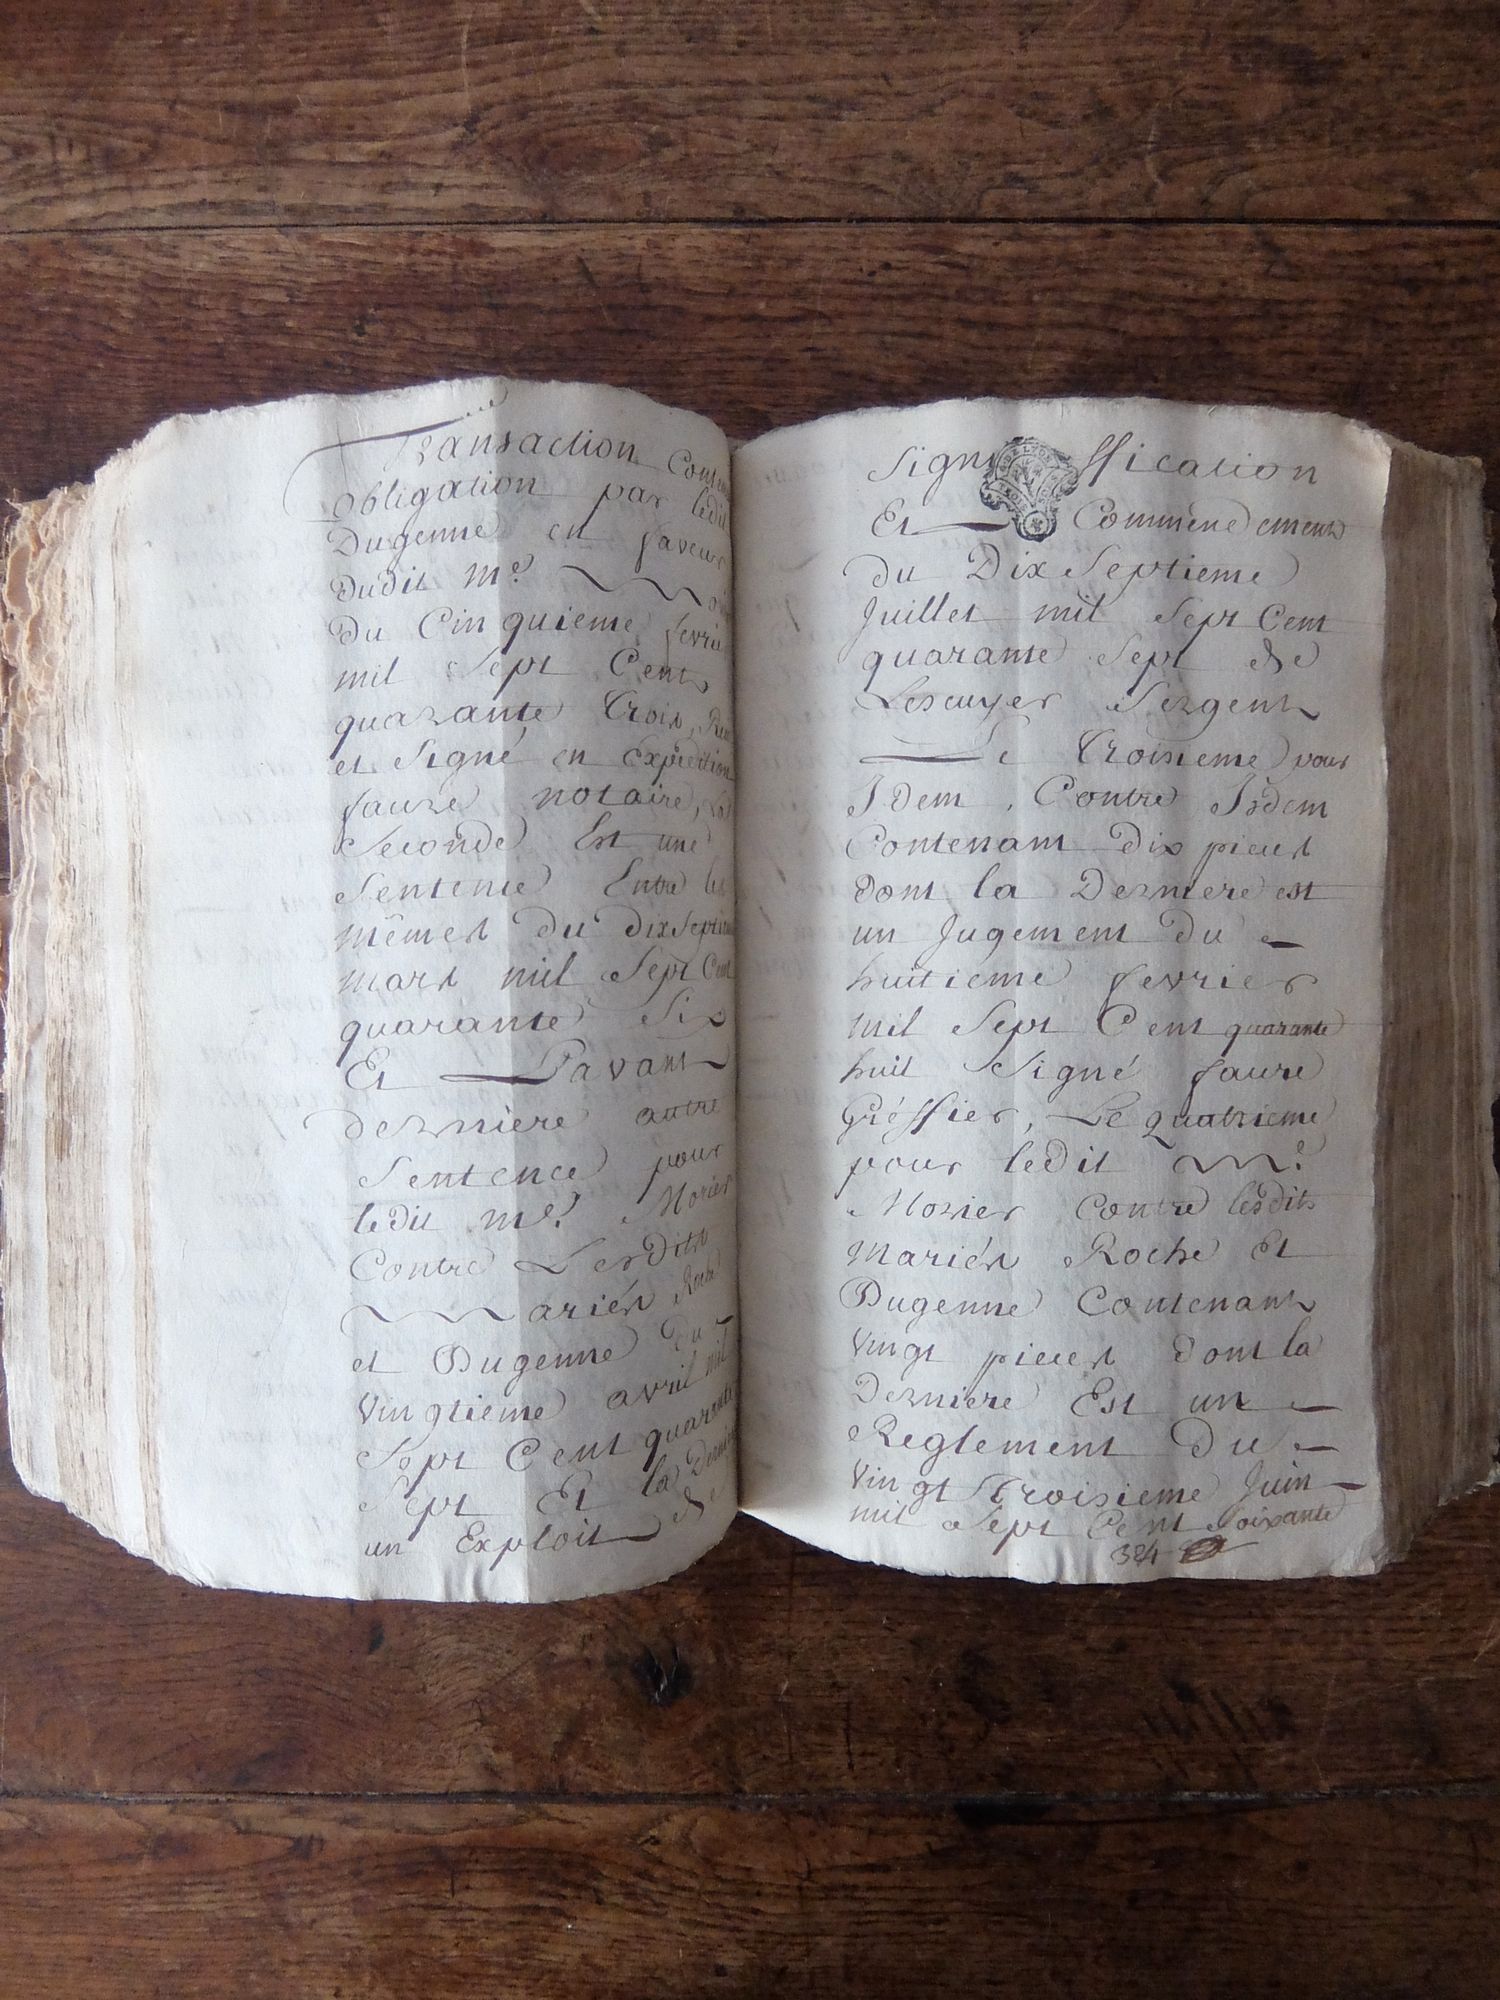 Transaction
obligation par ledit
Dugenne en faveur
dudit me.
du Cinquieme fevrier
mil Sept Cent
quarante Trois,
et Signé en Expedition
faure notaire, La
Seconde Est une
Sentence Entre les
mêmes du dix Septieme
mars mil Sept Cent
quarante Six
Et Lavant
derniere autre
Sentence pour
ledit me. Morier
Contre Lesdits
Mariés Roche
et Dugenne du
Vingtieme avril mil
Sept Cent quarante
Sept Et la Derniere
un Exploit de
Signiffication
Et Commendement
du Dix Septieme
Juillet mil Sept Cent
quarante Sept de
Lescuyer Sergent
Le Troisieme pour
Idem, Contre Isdem
Contenant dix pieces
dont la Derniere est
un Jugement du
huitieme fevrier
mil Sept Cent quarante
huit Signé faure
Gréffier, Le quatrieme
pour ledit me.
Morier Contre lesdits
Mariés Roche Et
Dugenne Contenant
Vingt pieces dont la
Derniere Est un
Reglement Du
Vingt Troisieme Juin
mil Sept Cent Soixante
324